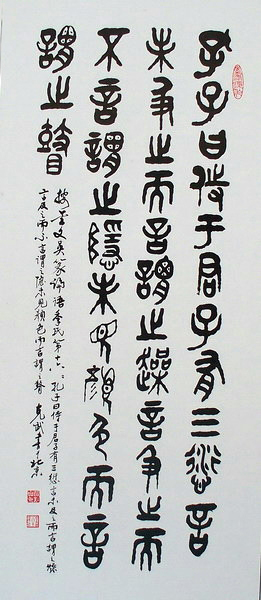 孔子曰侍于君子有三愆言
未及之而言謂之躁言及之而
不言謂之隱未見顏色而言
謂之瞽
論語季氏第十六：孔子曰侍于君子有三愆言未及之而言謂之躁
言及之而不言謂之隱未見顏色而言謂之瞽 克武書于北京